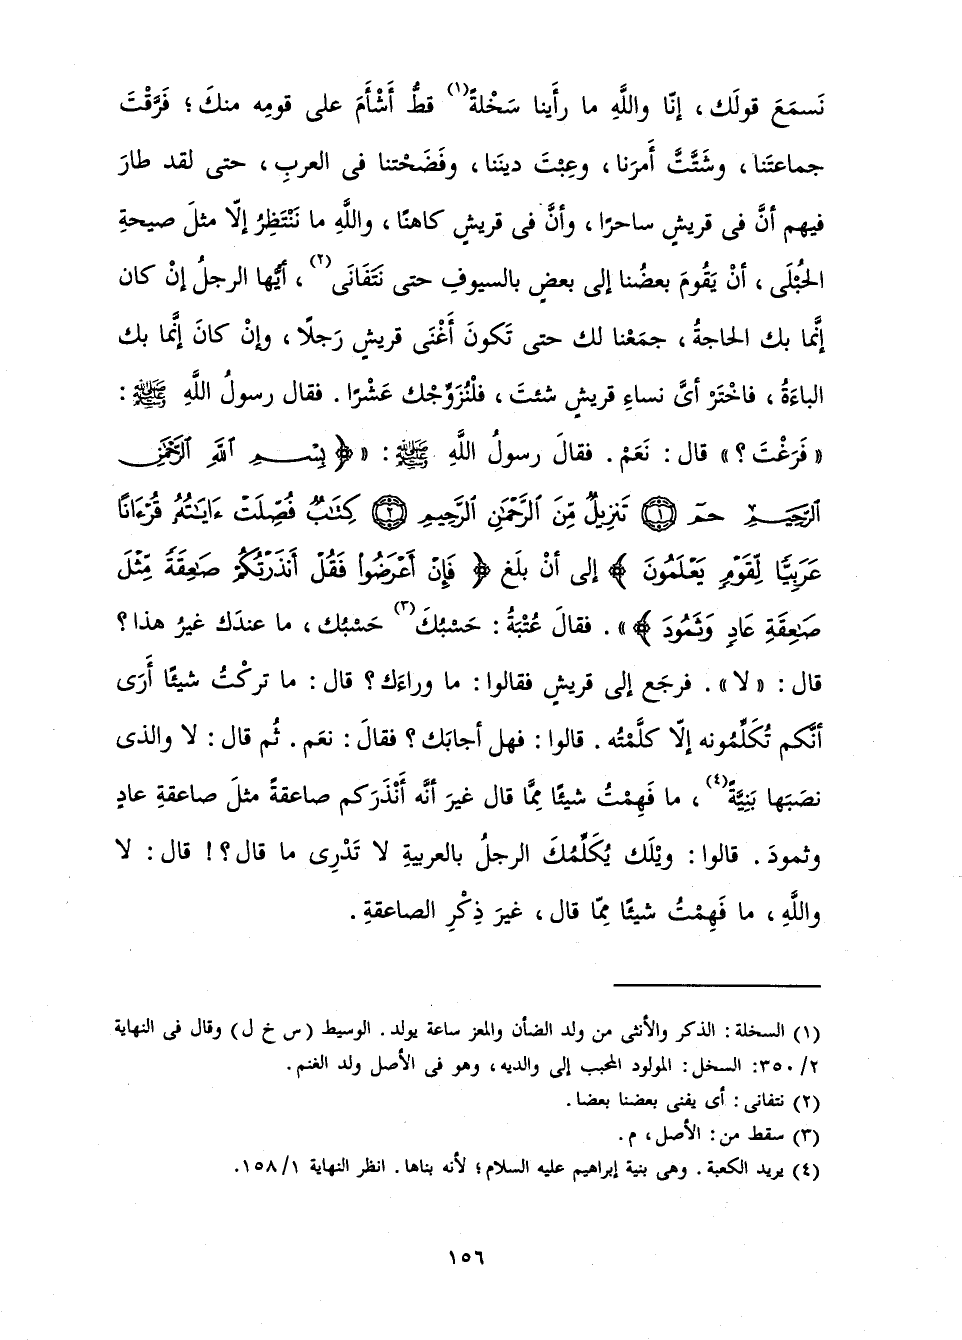 نَسمَعَ قولَك ، إنّا واللَّهِ ما رأَينا سَخْلةً(١) قطُّ أَشْأَمَ على قومِه منكَ ؛ فَرَّقْتَ
جماعتَنا ، وشَتَّتَّ أَمرَنا ، وعِبْتَ دينَنا ، وفَضَحْتنا فى العربِ ، حتى لقد طارَ
فيهم أنَّ فى قريشٍ ساحرًا ، وأنَّ فى قريشٍ كاهنًا ، واللَّهِ ما نَنْتَظِرُ إلّا مثلَ صيحةِ
الحُبْلَى ، أنْ يَقُومَ بعضُنا إلى بعضٍ بالسيوفِ حتى نَتَفَانَى(٢) ، أيُّها الرجلُ إنْ كان
إنَّما بك الحاجةُ ، جمَعْنا لك حتى تَكونَ أَغْنَى قريشٍ رَجلًا ، وإنْ كانَ إنَّما بك
الباءَةُ ، فاخْتَرْ أىَّ نساءِ قريشٍ شئتَ ، فلْنُزَوِّجْك عَشْرًا . فقال رسولُ اللَّهِ ﷺ :
« فَرَغْتَ ؟ » قال : نَعَمْ . فقالَ رسولُ اللَّهِ ﷺ : « ﴿ بِسْمِ ٱللَّهِ ٱلرَّحْمَٰنِ
ٱلرَّحِيمِ حمٓ ١ تَنزِيلٌ مِّنَ ٱلرَّحْمَٰنِ ٱلرَّحِيمِ ٢ كِتَٰبٌ فُصِّلَتْ ءَايَٰتُهُۥ قُرْءَانًا
عَرَبِيًّا لِّقَوْمٍ يَعْلَمُونَ ﴾ إلى أنْ بلَغ ﴿ فَإِنْ أَعْرَضُوا۟ فَقُلْ أَنذَرْتُكُمْ صَٰعِقَةً مِّثْلَ
صَٰعِقَةِ عَادٍ وَثَمُودَ ﴾ » . فقالَ عُتْبَةُ : حَسْبُكَ(٣) حَسْبُك ، ما عندَك غيرُ هذا ؟
قال : « لا » . فرجَع إلى قريشٍ فقالوا : ما وراءَك ؟ قال : ما تركْتُ شيئًا أَرَى
أنَّكم تُكَلِّمُونه إلّا كلَّمْتُه . قالوا : فهل أجابَك ؟ فقالَ : نعَم . ثُم قال : لا والذى
نصَبَها بَنِيَّةً(٤) ، ما فَهِمْتُ شيئًا مِمَّا قال غيرَ أنَّه أَنْذَرَكم صاعقةً مثلَ صاعقةِ عادٍ
وثمودَ . قالوا : ويْلَك يُكَلِّمُكَ الرجلُ بالعربيةِ لا تَدْرِى ما قال ؟ ! قال : لا
واللَّهِ ، ما فَهِمْتُ شيئًا مِمّا قال ، غيرَ ذِكْرِ الصاعقةِ .
(١) السخلة : الذكر والأنثى من ولد الضأن والمعز ساعة يولد . الوسيط (س خ ل) وقال فى النهاية
٢/ ٣٥٠: السخل : المولود المحبب إلى والديه ، وهو فى الأصل ولد الغنم .
(٢) نتفانى : أى يفنى بعضنا بعضا .
(٣) سقط من : الأصل ، م .
(٤) يريد الكعبة . وهى بنية إبراهيم عليه السلام ؛ لأنه بناها . انظر النهاية ١/ ١٥٨.
١٥٦